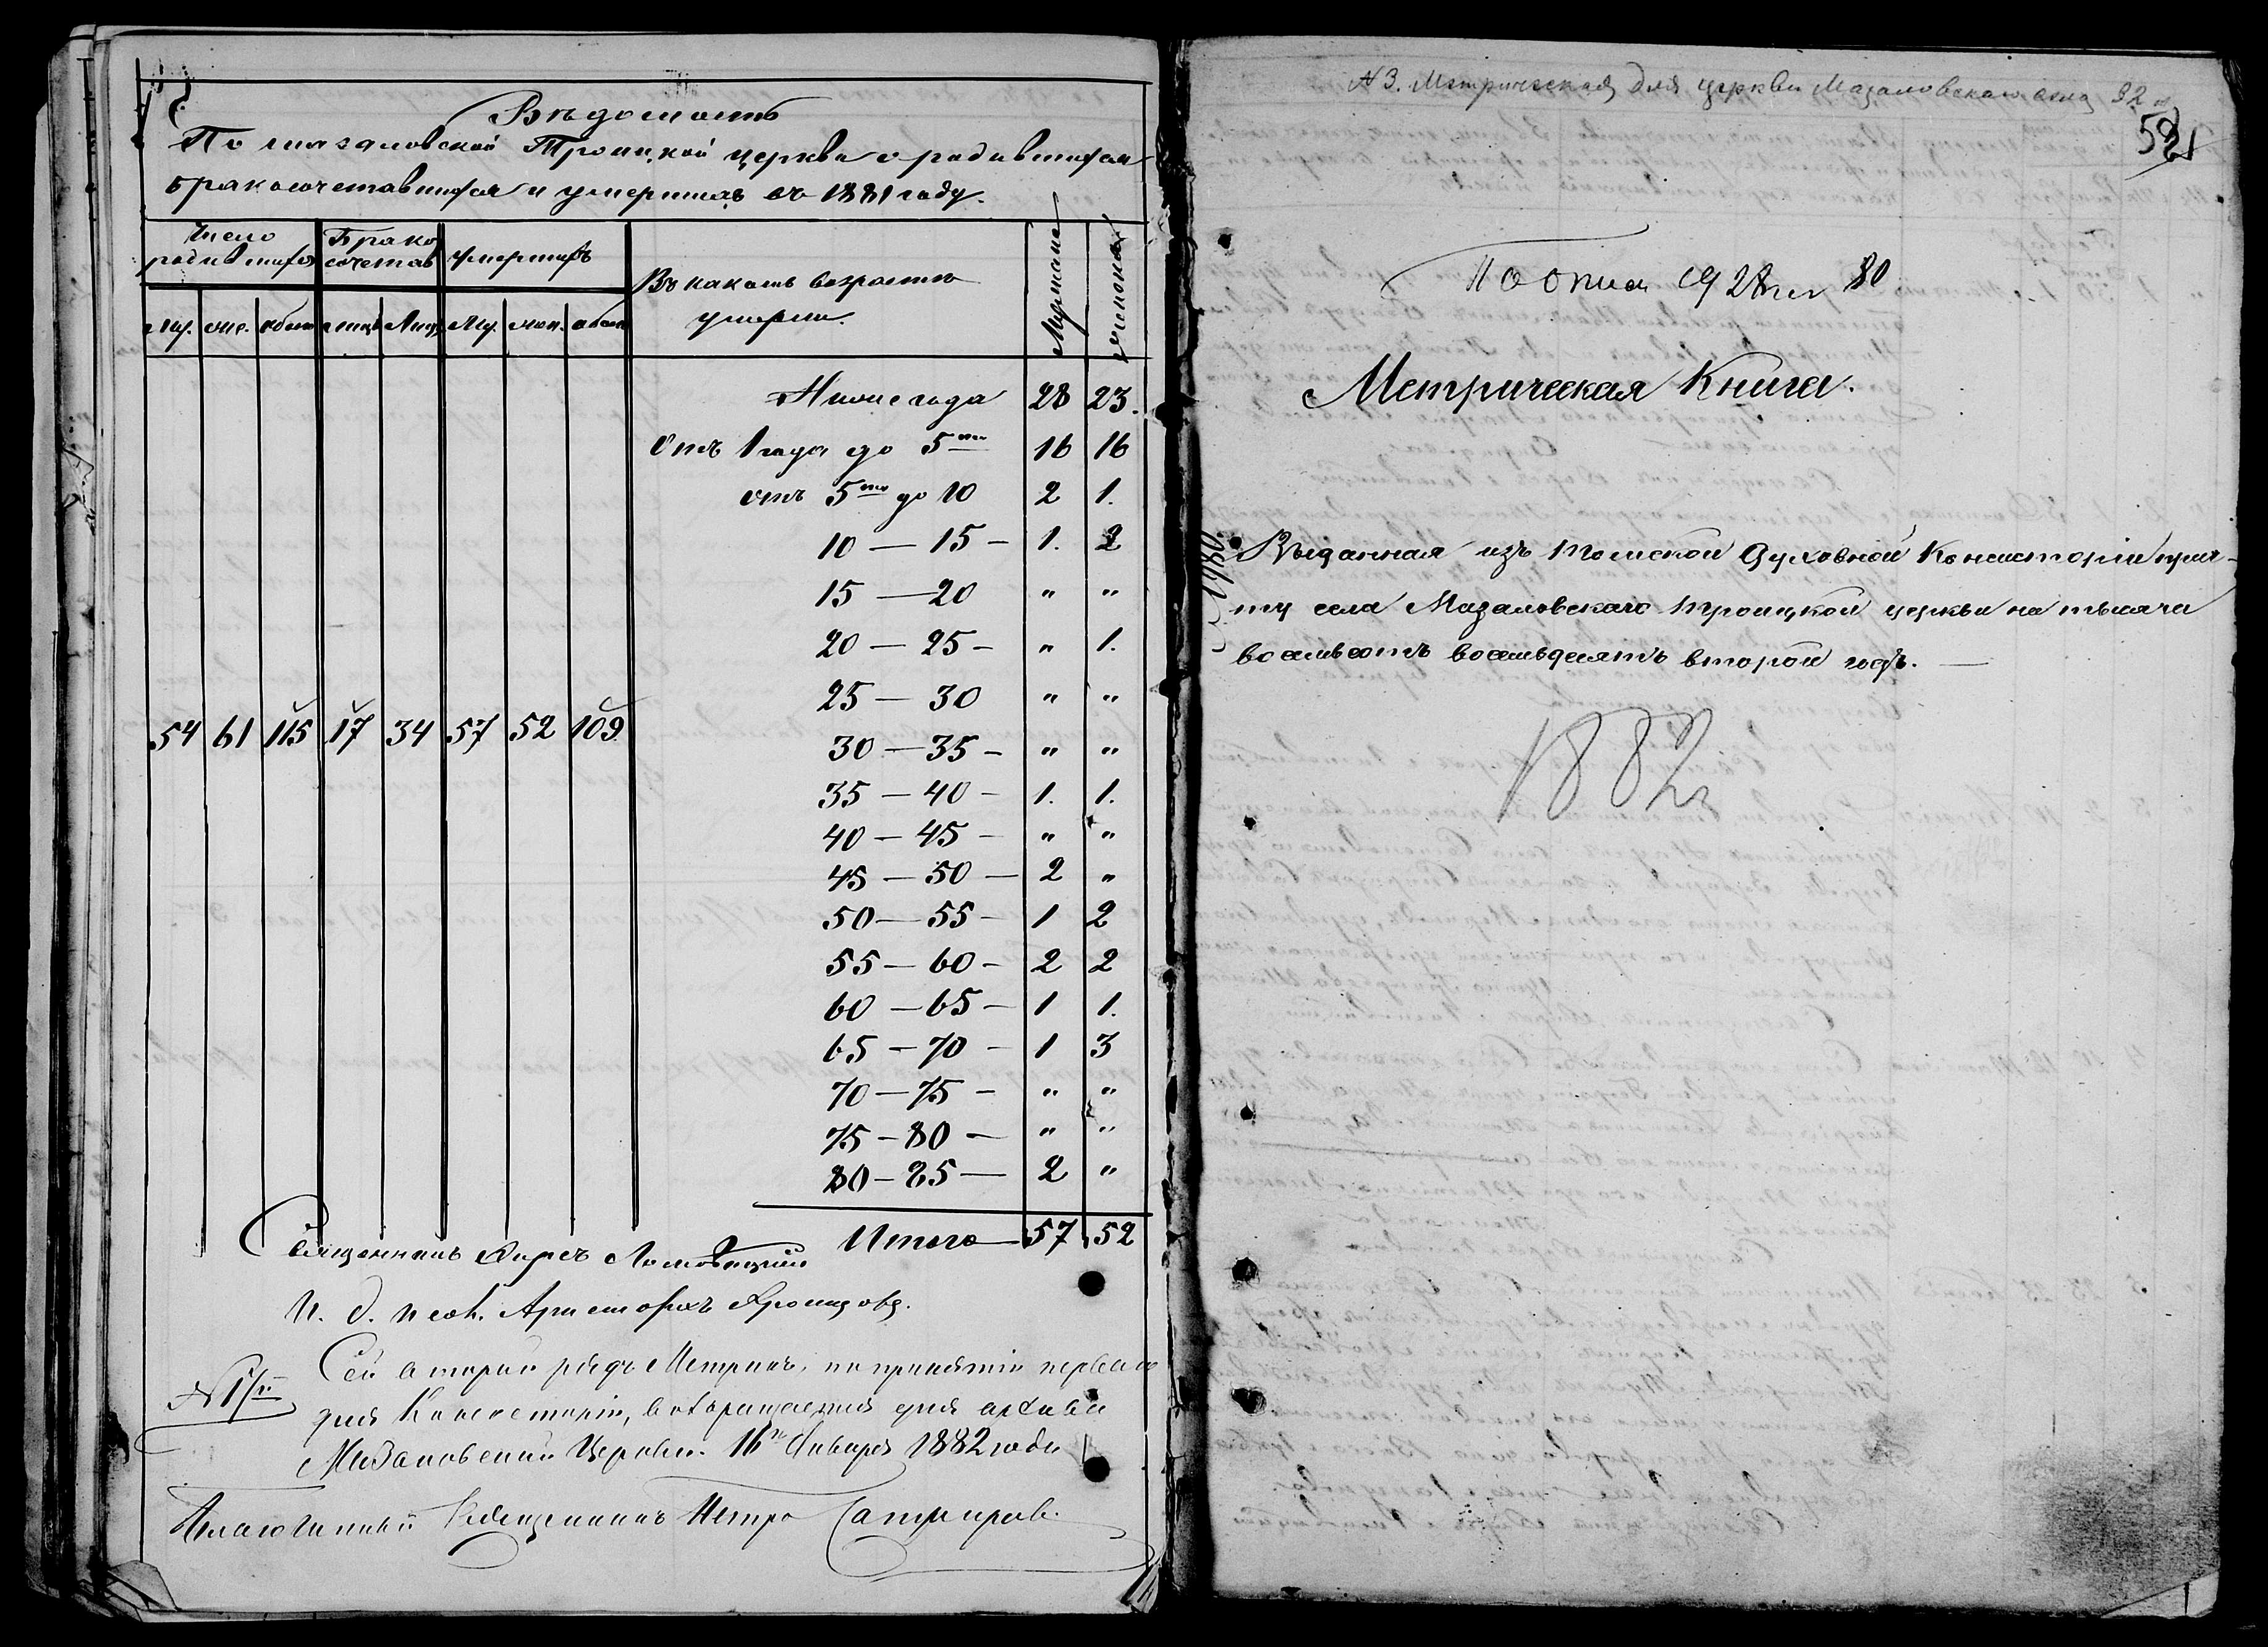 Вѣдомость
По Мазаловской Троицкой церкви о родившихся
бракосочетавшихся и умершихъ въ 1881 году.
Число родившихся
Брако сочетав
Умершихъ
Въ какомъ возрастѣ умерли.
Мужескаго
женскаго
му. жен. обоего лицъ Му. жен. обоего
54 61 115 17 34 57 52 109
Ниже года 28 23.
Отъ 1 года до 5ти 16 16
отъ 5ти до 10 2 1.
10 — 15 — 1. 2
15 — 20 " "
20 — 25 — " 1.
25 — 30 " "
30 — 35 — " "
35 — 40 — 1. 1.
40 — 45 — " "
45 — 50 — 2 "
50 — 55 — 1 2
55 — 60 — 2 2
60 — 65 — 1 1.
65 — 70 — 1 3
70 — 75 — " "
75 — 80 — " "
80 — 85 — 2 "
Итого 57 52
Священникъ Киръ
И. д. псал. Аристархъ
№ 1/й
Сей второй рядъ Метрикъ, по принятіи перваго
для Консисторіи, возвращается для архива
Мазаловской Церкви. 16го Января 1882 года
Благочинный Священникъ Петръ
№ 3. Метрическая для церкви Мазаловскаго села 82
Метрическая Книга.
Выданная изъ Томской Духовной Консисторіи прич-
ту села Мазаловскаго Троицкой церкви на тысяча
восемьсотъ восемьдесятъ второй годъ. —
1882 г